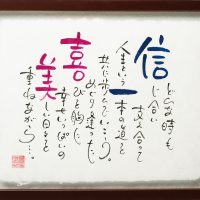 どんな時も
信じ合い
支え合って
人生という
一本の道を
共に歩んでいこう。
めぐり逢えた
喜びを胸に
幸せいっぱいの
美しい日々を
重ねながら…。